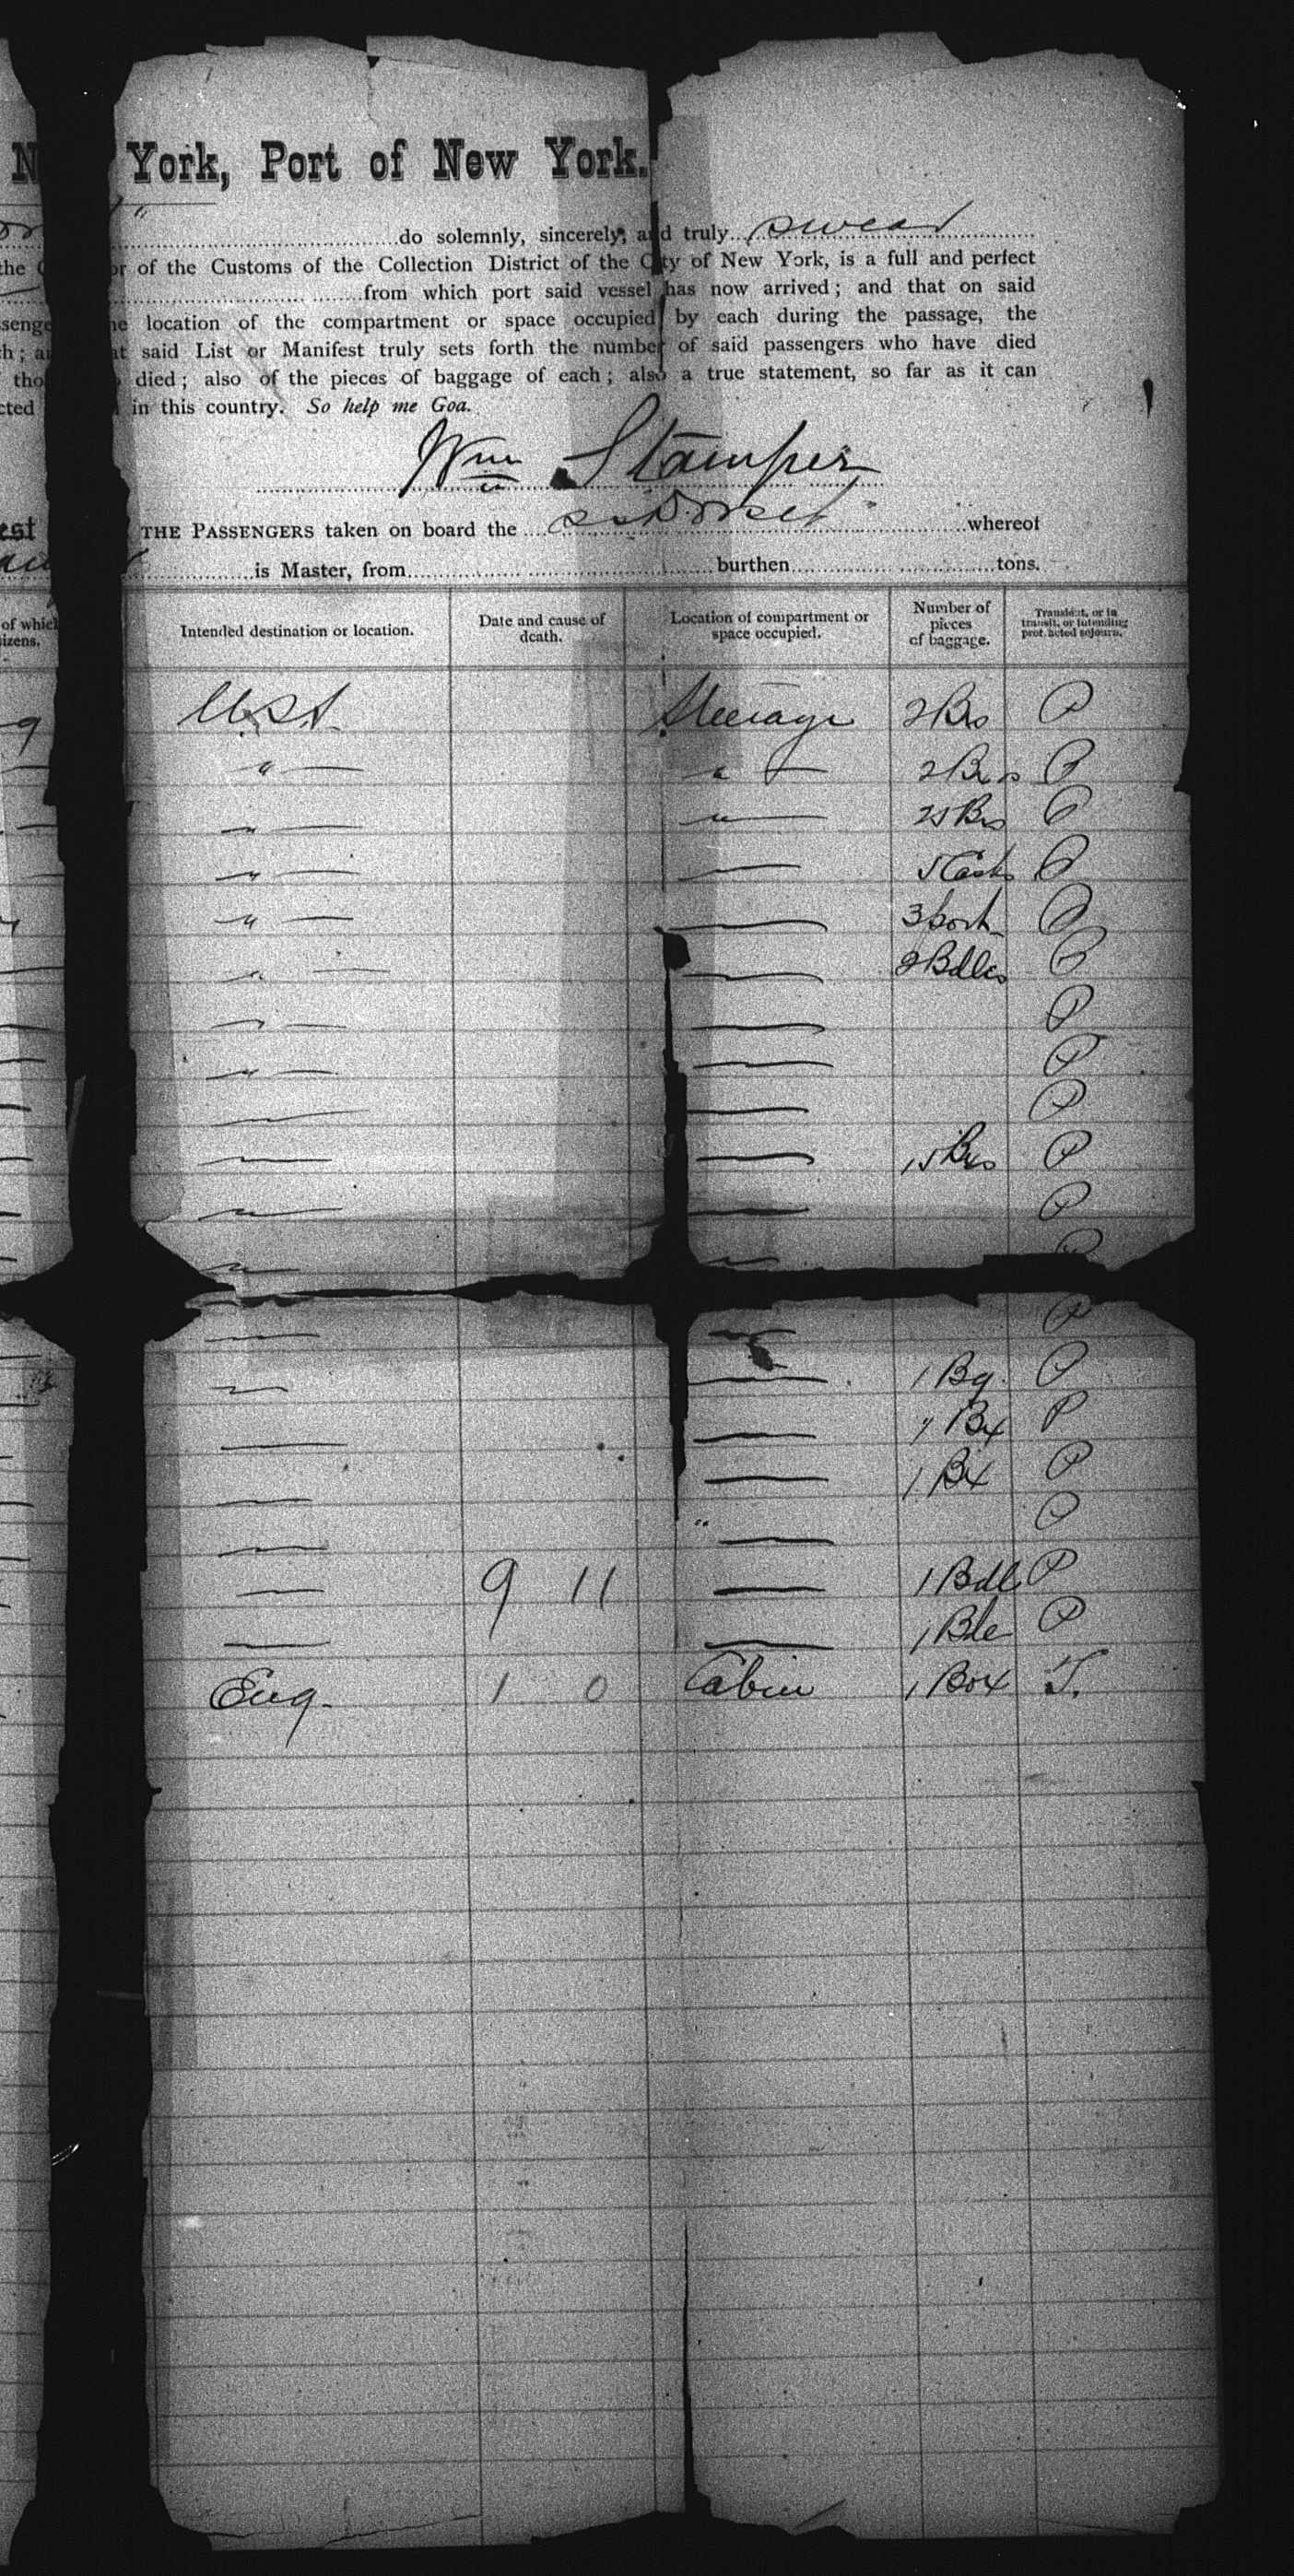 York, Port of New York.
do solemnly, sincerely, and truly swear
the of the Customs of the Collection District of the City of New York, is a full and perfect
from which port said vessel has now arrived; and that on said
location of the compartment or space occupied by each during the passage, the
said List or Manifest truly sets forth the number of said passengers who have died
died; also of the pieces of baggage of each; also a true statement, so far as it can
in this country. So help me Goa.
Wm Stamper
THE PASSENGERS taken on board the ss Dorset whereof
is Master, from burthen tons.
Intended destination or location. Date and cause of death. Location of compartment or space occupied. Number of pieces of baggage. Transient, or in transit, or intending protracted sojourn.
USA Steerage 2 Bxs P
" " 2 Bxs P
" " 25 Bxs P
" 5 Casks P
" 3 port P
" 2 Bdles P
" P
" P
P
15 Bxs P
P
P
P
1 Bg. P
" Bx P
1 Bx P
" P
9 11 1 Bdl P
1 Ble P
Eng. 1 0 Cabin 1 Box T.